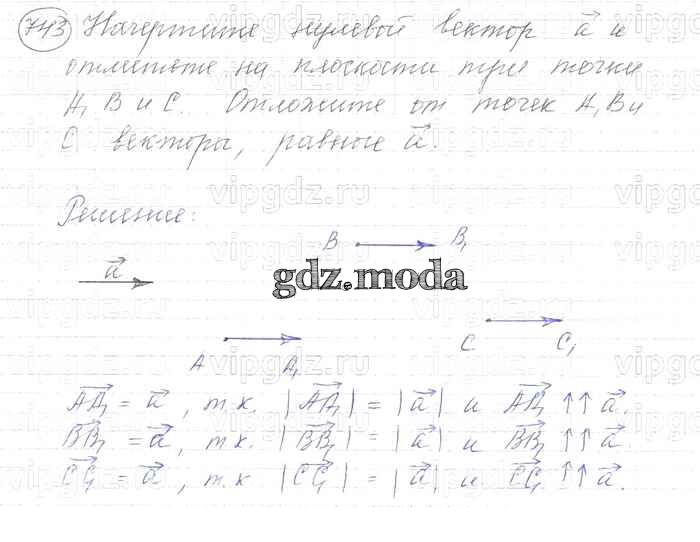 743 Начертите нулевой вектор a⃗ и
отметьте на плоскости три точки
A, B и C. Отложите от точек A, B и
C векторы, равные a⃗.
Решение:
B B₁
a⃗
gdz.moda
C C₁
A A₁
AA₁⃗ = a⃗, т.к. |AA₁⃗| = |a⃗| и AA₁⃗ ↑↑ a⃗.
BB₁⃗ = a⃗, т.к. |BB₁⃗| = |a⃗| и BB₁⃗ ↑↑ a⃗.
CC₁⃗ = a⃗, т.к. |CC₁⃗| = |a⃗| и CC₁⃗ ↑↑ a⃗.
vipgdz.ru